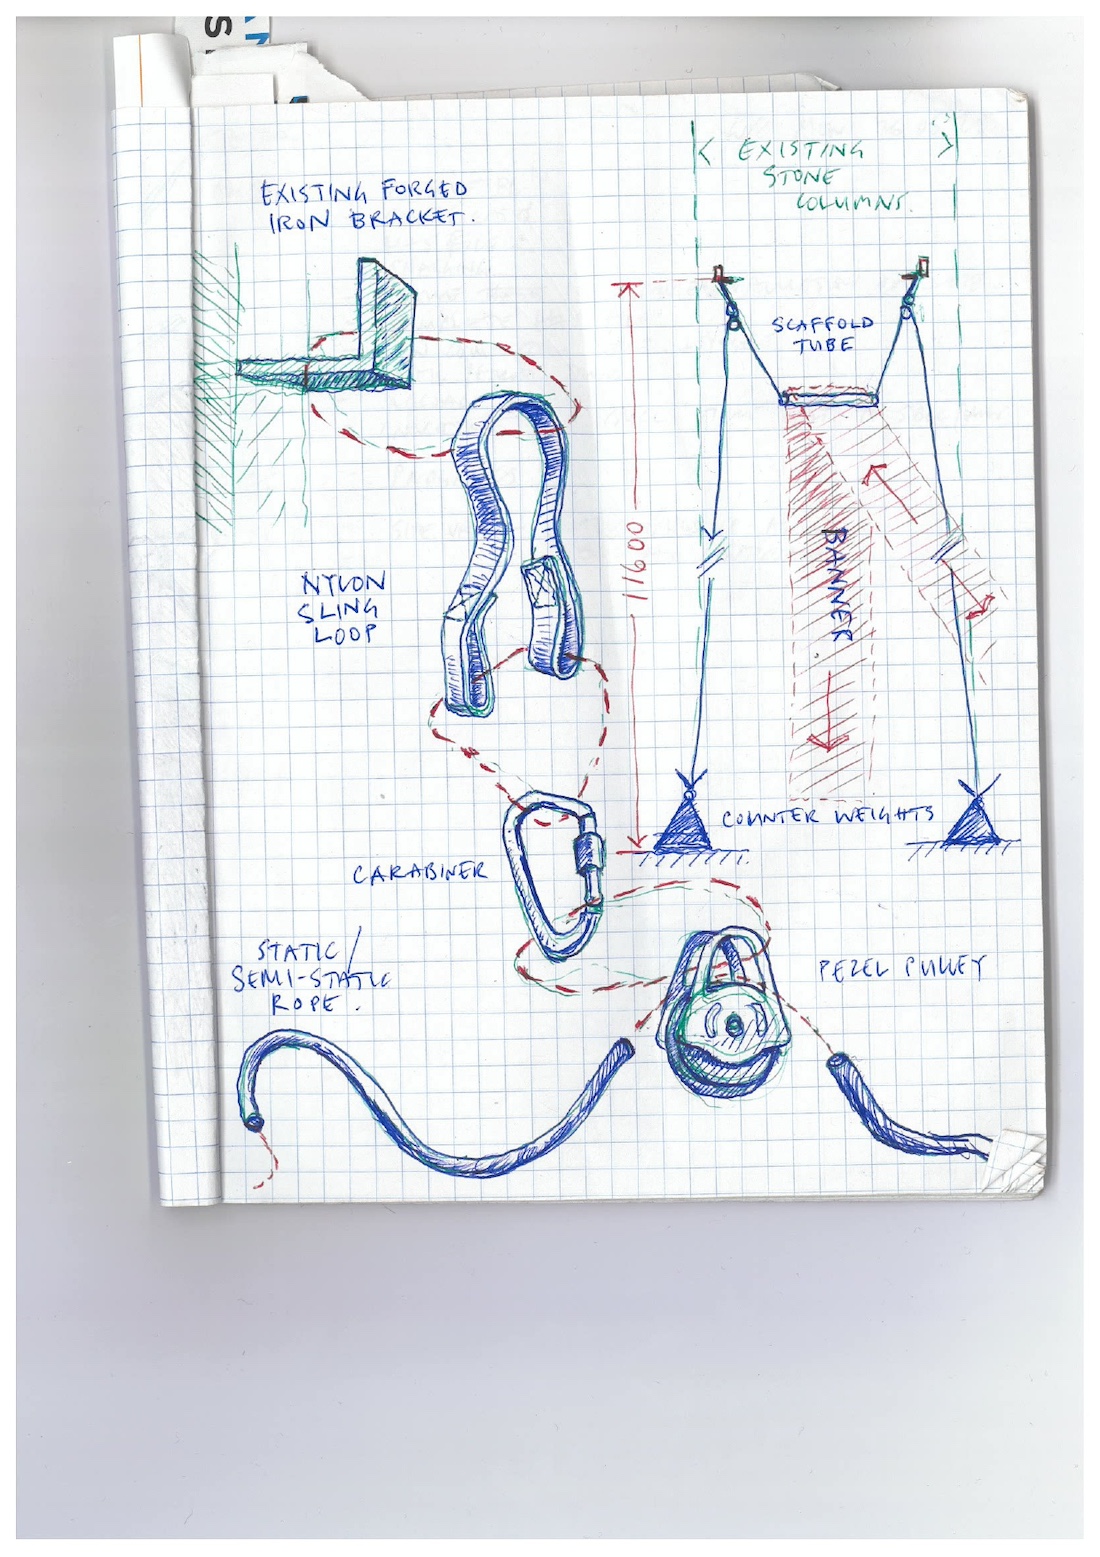 EXISTING FORGED
IRON BRACKET.
< EXISTING >
STONE
COLUMNS.
SCAFFOLD
TUBE
11600
NYLON
SLING
LOOP
BANNER.
COUNTER WEIGHTS
CARABINER
STATIC/
SEMI-STATIC
ROPE.
PEZEL PULLEY